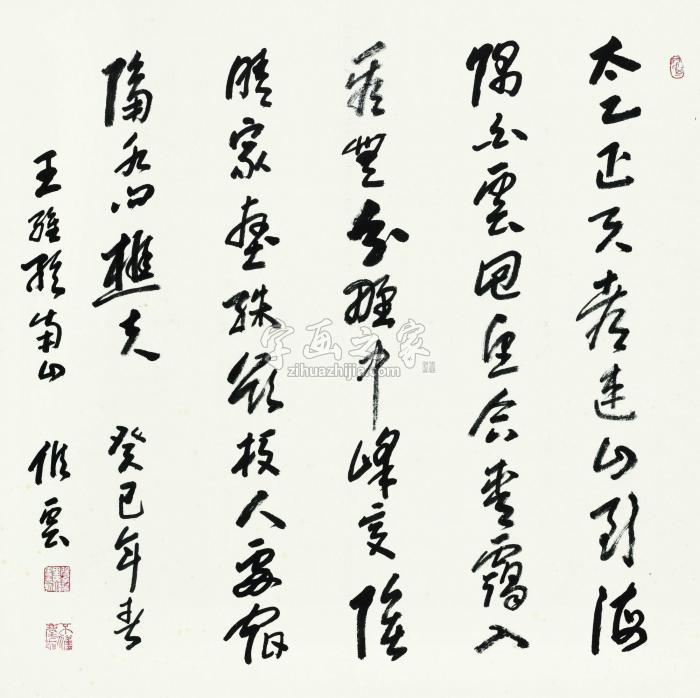 太乙近天都連山到海
隅白雲回望合青靄入
看無分野中峰變陰
晴眾壑殊欲投人處宿
隔水問樵夫 癸巳年春
王維終南山 雲
字画之家
zihuazhijia.com